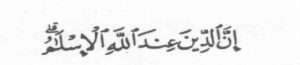 إِنَّ ٱلدِّينَ عِندَ ٱللَّهِ ٱلْإِسْلَٰمُ ۗ